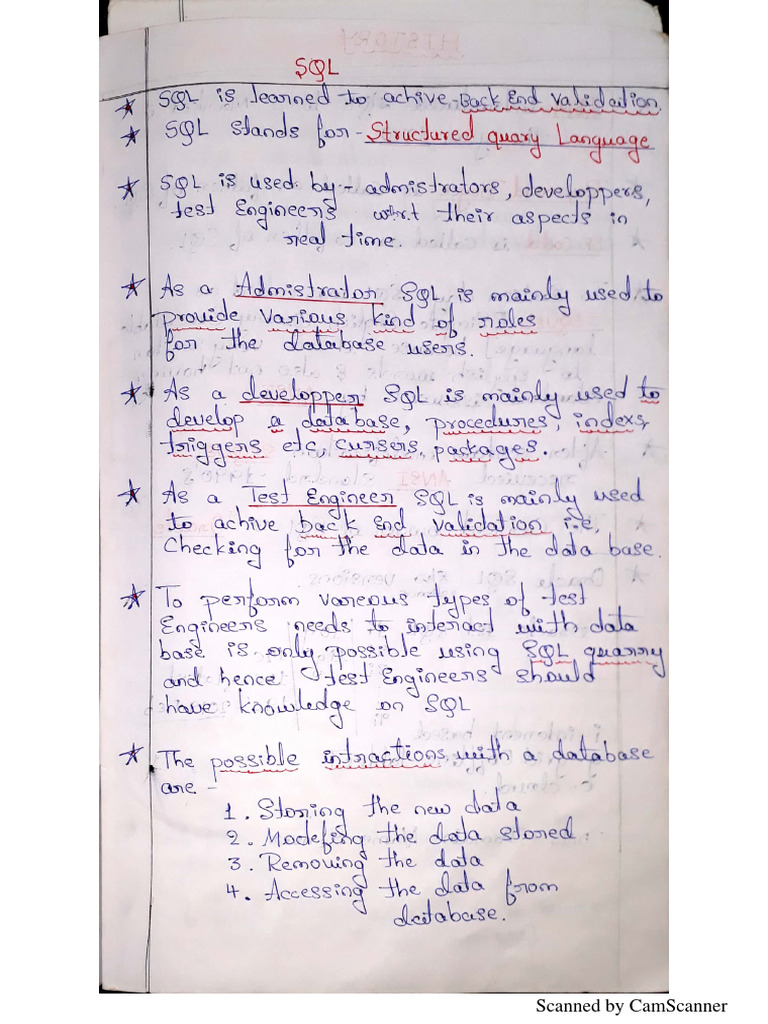 SQL
★ SQL is learned to achive Back End Validation.
★ SQL stands for - Structured quary Language
★ SQL is used by - admistrators, developpers,
test Engineers w.r.t their aspects in
real time.
★ As a Admistrator SQL is mainly used to
provide various kind of roles
for the database users.
★ As a developper SQL is mainly used to
develop a database, procedures, indexs,
triggers etc, cursers, packages.
★ As a Test Engineer SQL is mainly used
to achive back End validation i.e,
Checking for the data in the data base.
★ To perform vareous types of test
Engineers needs to interact with data
base is only possible using SQL quarry
and hence test Engineers should
have knowledge on SQL
★ The possible intractions with a database
are -
1. Storing the new data
2. Modefing the data stored
3. Removing the data
4. Accessing the data from
database.
Scanned by CamScanner